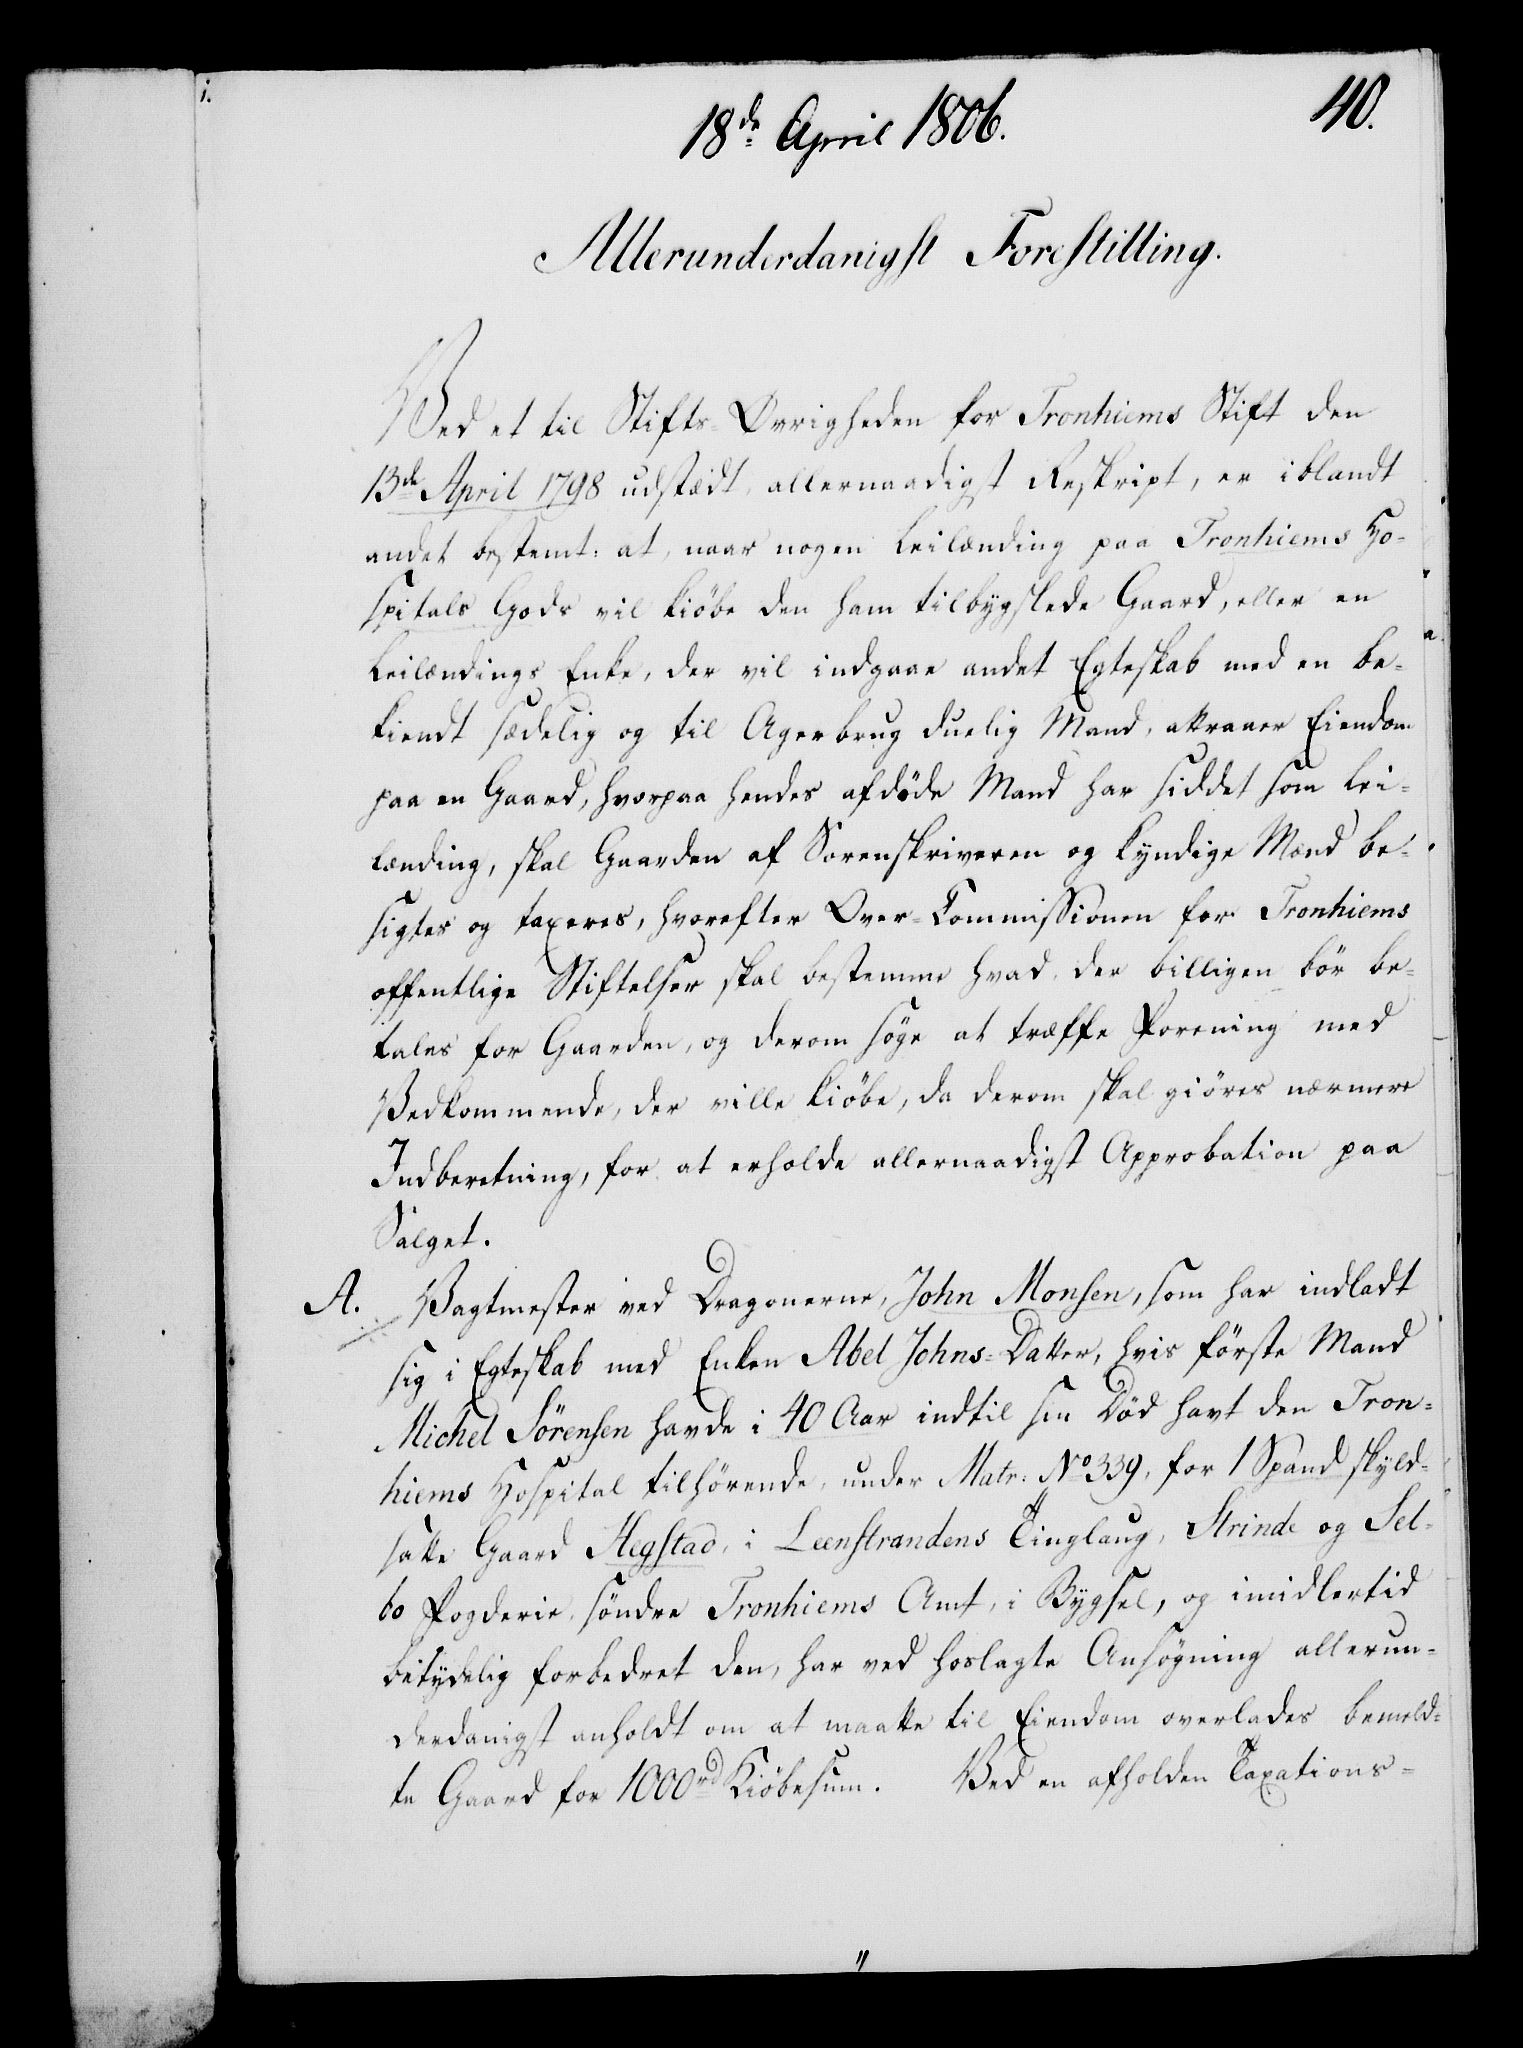 18de April 1806.
40.
Allerunderdanigst Forestilling.
Ved et til Stifts-Øvrigheden for Tronhiems Stift den
13de April 1798 udstædt allernaadigst Reskript, er iblandt
andet bestemt: at, naar nogen Leilænding paa Tronhiems Ho-
spitals Gods vil kiöbe den ham tilbygslede Gaard, eller en
Leilændings Enke, der vil indgaae andet Egteskab med en be-
kiendt sædelig og til Agerbrug duelig Mand, attraaer Eiendom
paa en Gaard, hvorpaa hendes afdöde Mand har siddet som Lei-
lænding, skal Gaarden af Sorenskriveren og kyndige Mænd be-
sigtes og taxeres, hvorefter Over-Commissionen for Tronhiems
offentlige Stiftelser skal bestemme hvad der billigen bör be-
tales for Gaarden, og derom söge at træffe Forening med
Vedkommende, der ville kiöbe, da derom skal giöres nærmere
Indberetning, for at erholde allernaadigst Approbation paa
Salget.
A. Vagtmester ved Dragonerne, John Monsen, som har indladt
sig i Egteskab med Enken Abel Johns-Datter, hvis förste Mand
Michel Sörensen havde i 40 Aar indtil sin Död havt den Tron-
hiems Hospital tilhörende, under Matr: No 339, for 1 Spand skyld-
satte Gaard Hegstad, i Leenstrandens Tinglaug, Strinde og Sel-
bo Fogderie, söndre Tronhiems Amt, i Bygsel, og imidlertid
betydelig forbedret den, har ved hoslagte Ansögning allerun-
derdanigst anholdt om at maatte til Eiendom overlades bemeld-
te Gaard for 1000rd Kiöbesum. Ved en afholden Taxations-